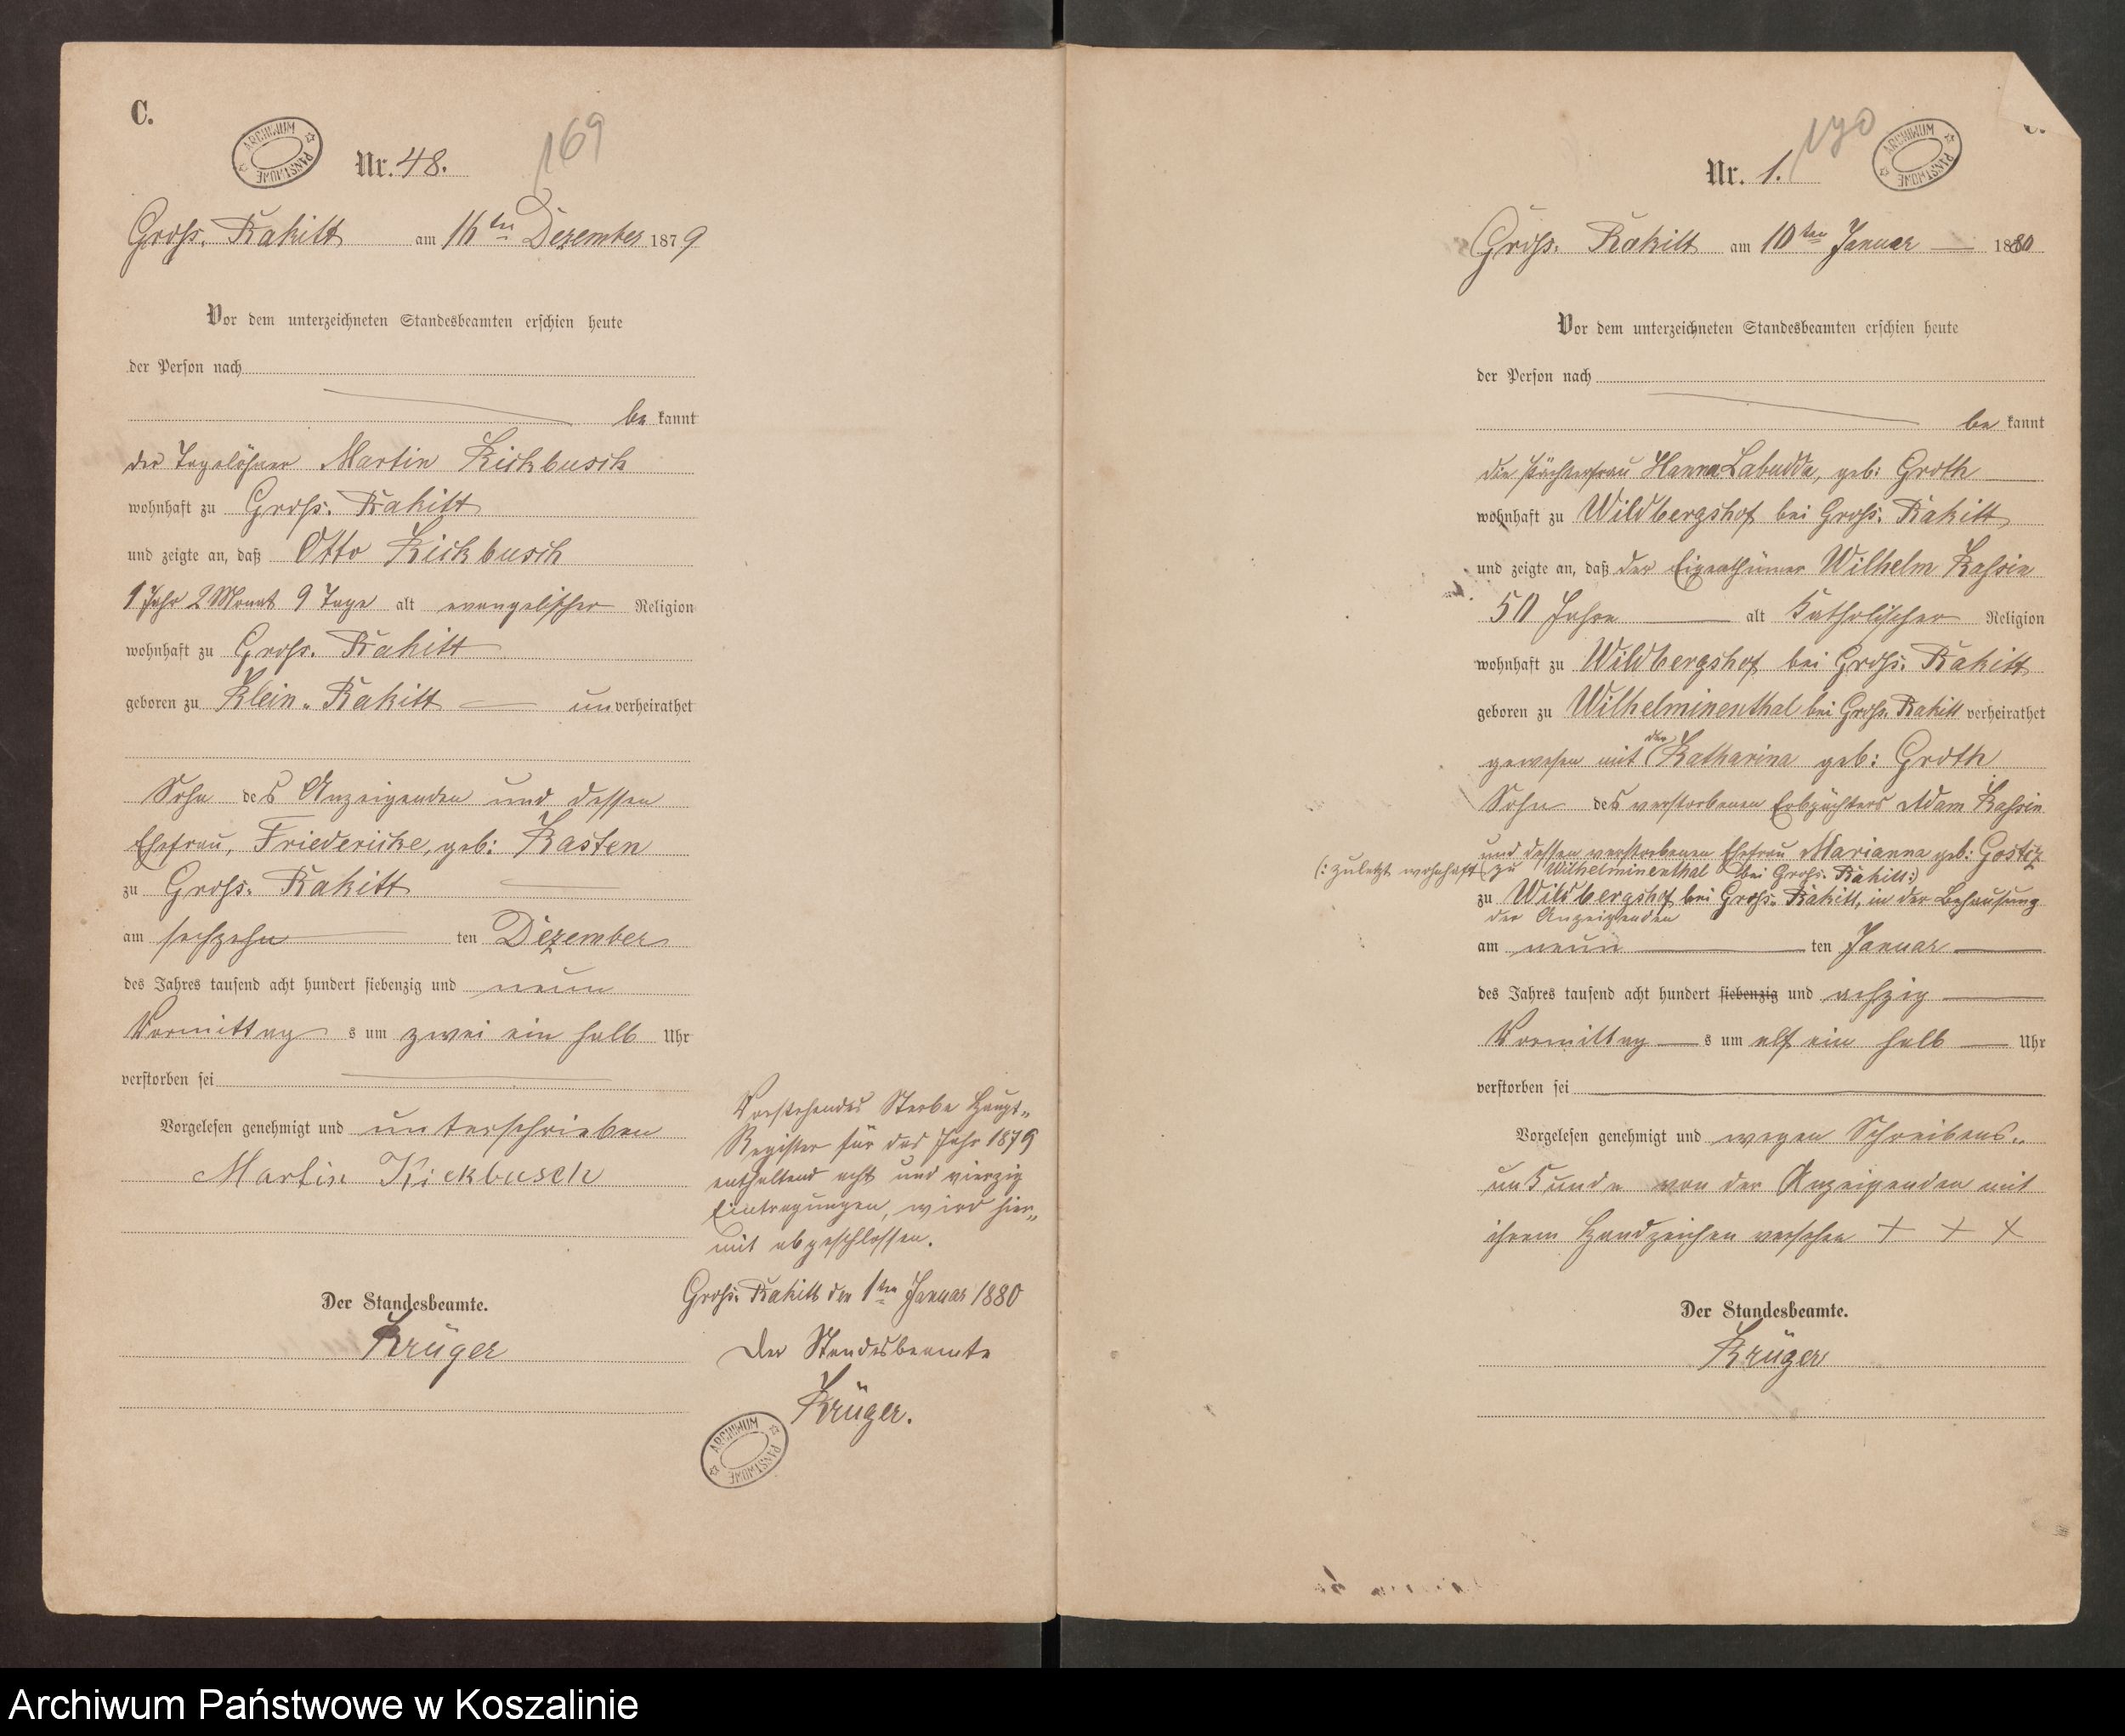 C.
ARCHIWUM PAŃSTWOWE
169
Nr. 48.
Gross. Rakitt am 16ten Dezember 1879
Vor dem unterzeichneten Standesbeamten erschien heute
der Person nach
be kannt
der Tagelöhner Martin Kickbusch
wohnhaft zu Gross. Rakitt
und zeigte an, daß Otto Kickbusch
1 Jahr 2 Monat 9 Tage alt evangelischer Religion
wohnhaft zu Gross. Rakitt
geboren zu Klein-Rakitt unverheirathet
Sohn des Anzeigenden und dessen
Ehefrau, Friedericke, geb: Kasten
zu Gross. Rakitt
am sechzehn ten Dezember
des Jahres tausend acht hundert siebenzig und neun
Vormittag s um zwei ein halb Uhr
verstorben sei
Vorgelesen genehmigt und unterschrieben
Martin Kickbusch
Der Standesbeamte.
Krüger
Vorstehendes Sterbe Haupt-
Register für das Jahr 1879
enthaltend acht und vierzig
Eintragungen, wird hier-
mit abgeschlossen.
Gross. Rakitt den 1ten Januar 1880
Der Standesbeamte
Krüger.
ARCHIWUM PAŃSTWOWE
C.
170
ARCHIWUM PAŃSTWOWE
Nr. 1.
Gross. Rakitt am 10ten Januar 1880
Vor dem unterzeichneten Standesbeamten erschien heute
der Person nach
be kannt
die Pächterfrau Hanna Labudda, geb: Groth
wohnhaft zu Wildbergshof bei Gross. Rakitt
und zeigte an, daß der Eigenthümer Wilhelm Kassin
50 Jahre alt Katholischer Religion
wohnhaft zu Wildbergshof bei Gross. Rakitt
geboren zu Wilhelminenthal bei Gross. Rakitt verheirathet
gewesen mit der Katharina geb: Groth
Sohn des verstorbenen Erbpächters Adam Kassin
und dessen verstorbenen Ehefrau Marianna geb: Gostiz
(: zuletzt wohnhaft zu Wilhelminenthal bei Gross. Rakitt:)
zu Wildbergshof bei Gross. Rakitt, in der Behausung
der Anzeigenden
am neun ten Januar
des Jahres tausend acht hundert siebenzig und achzig
Vormittag s um elf ein halb Uhr
verstorben sei
Vorgelesen genehmigt und wegen Schreibens-
unkunde von der Anzeigenden mit
ihrem Handzeichen versehen + + +
Der Standesbeamte.
Krüger
Archiwum Państwowe w Koszalinie